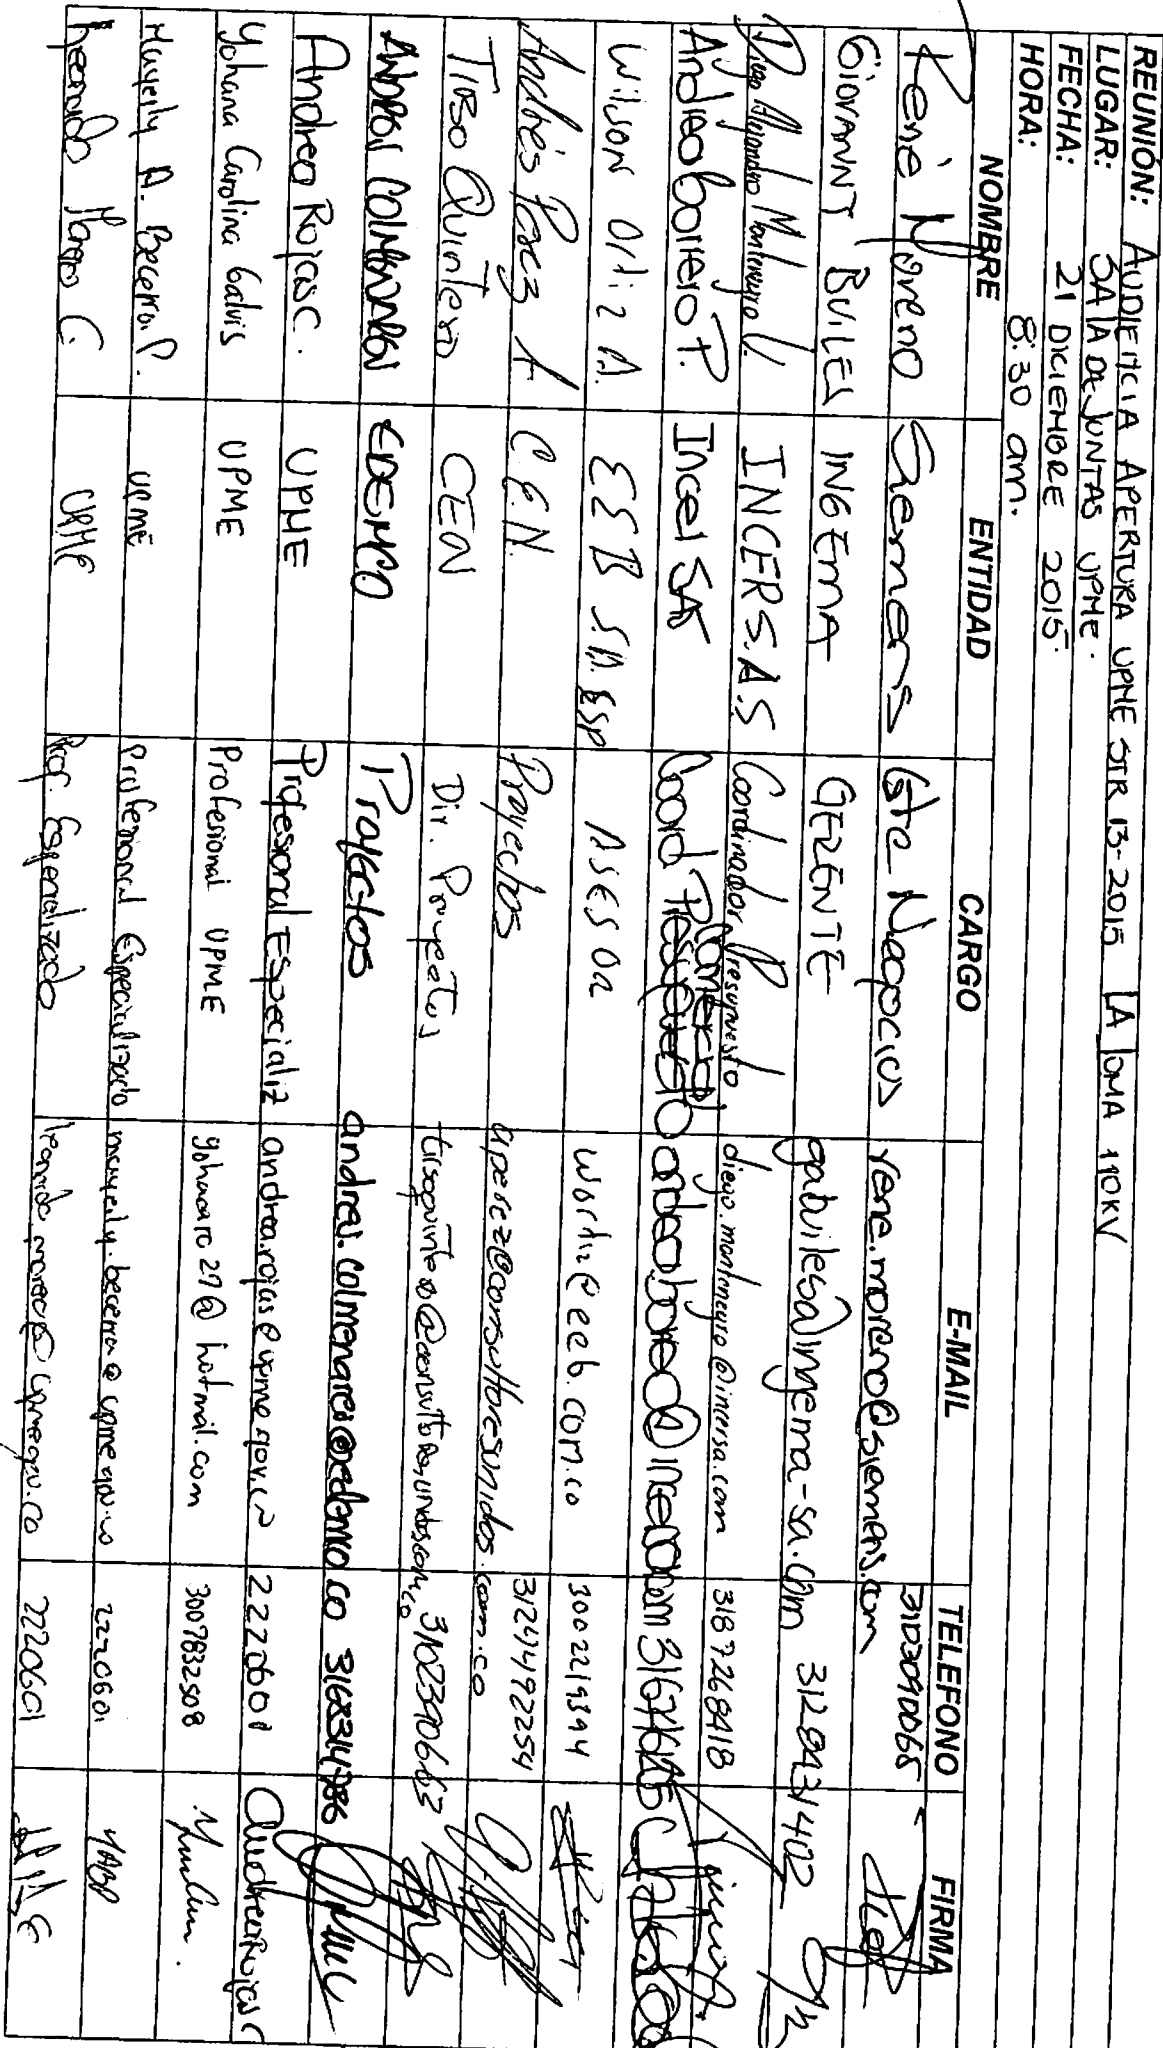 REUNIÓN: AUDIENCIA APERTURA UPME STR 13-2015 LA LOMA 110KV
LUGAR: SALA DE JUNTAS UPME.
FECHA: 21 DICIEMBRE 2015.
HORA: 8:30 am.
NOMBRE ENTIDAD CARGO E-MAIL TELEFONO FIRMA
René Moreno Siemens Gte Negocios rene.moreno@siemens.com 3103090065
GIOVANNI BUILES INGEMA GERENTE gabuiles@ingema-sa.com 3128431402
Diego Alejandro Montenegro L. INCER S.A.S Coordinador Presupuesto diego.montenegro@incersa.com 3187268418
Andrea borrero P. Incel SAS Coord Presupuesto Comercial
Wilson Ortiz A. EEB S.A. ESP ASESOR wortiz@eeb.com.co 3002219394
Andrés Pérez A C.E.N. Proyectos aperez@consultoresunidos.com.co 3124492254
TIRSO Quintero CEN Dir. Proyectos tirsoquintero@consultoresunidos.com.co 3102390663
ANDRES COLMENARES EDEMCO Proyectos andres.colmenares@edemco.co
Andrea Rojas C. UPME Profesional Especializ andrea.rojas@upme.gov.co 2220601 Andrea Rojas C
Yohana Carolina Galvis UPME Profesional UPME yohacaro27@hotmail.com 3007832508
Mayerly A. Becerra P. UPME Profesional Especializado mayerly.becerra@upme.gov.co 2220601 MABP
Leonardo Moreno C. UPME Prof. Especializado leonardo.moreno@upme.gov.co 2220601